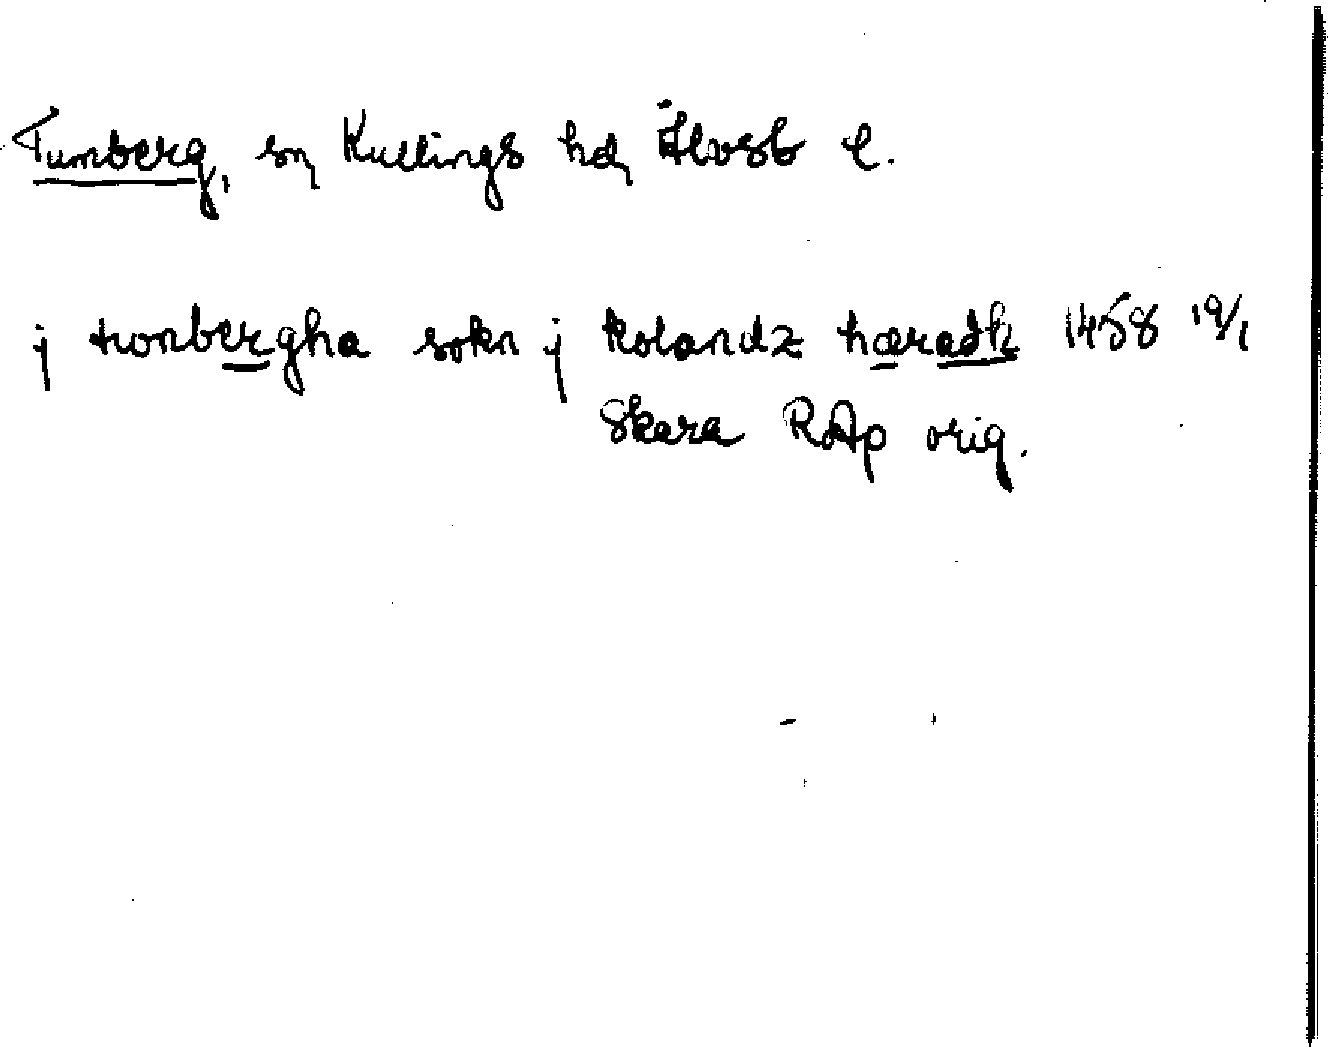 Tumberg, sn Kullings hd Älvsb l.
j honbergha sokn j kolandz hæradh 1458 19/1
Skara RAp orig.